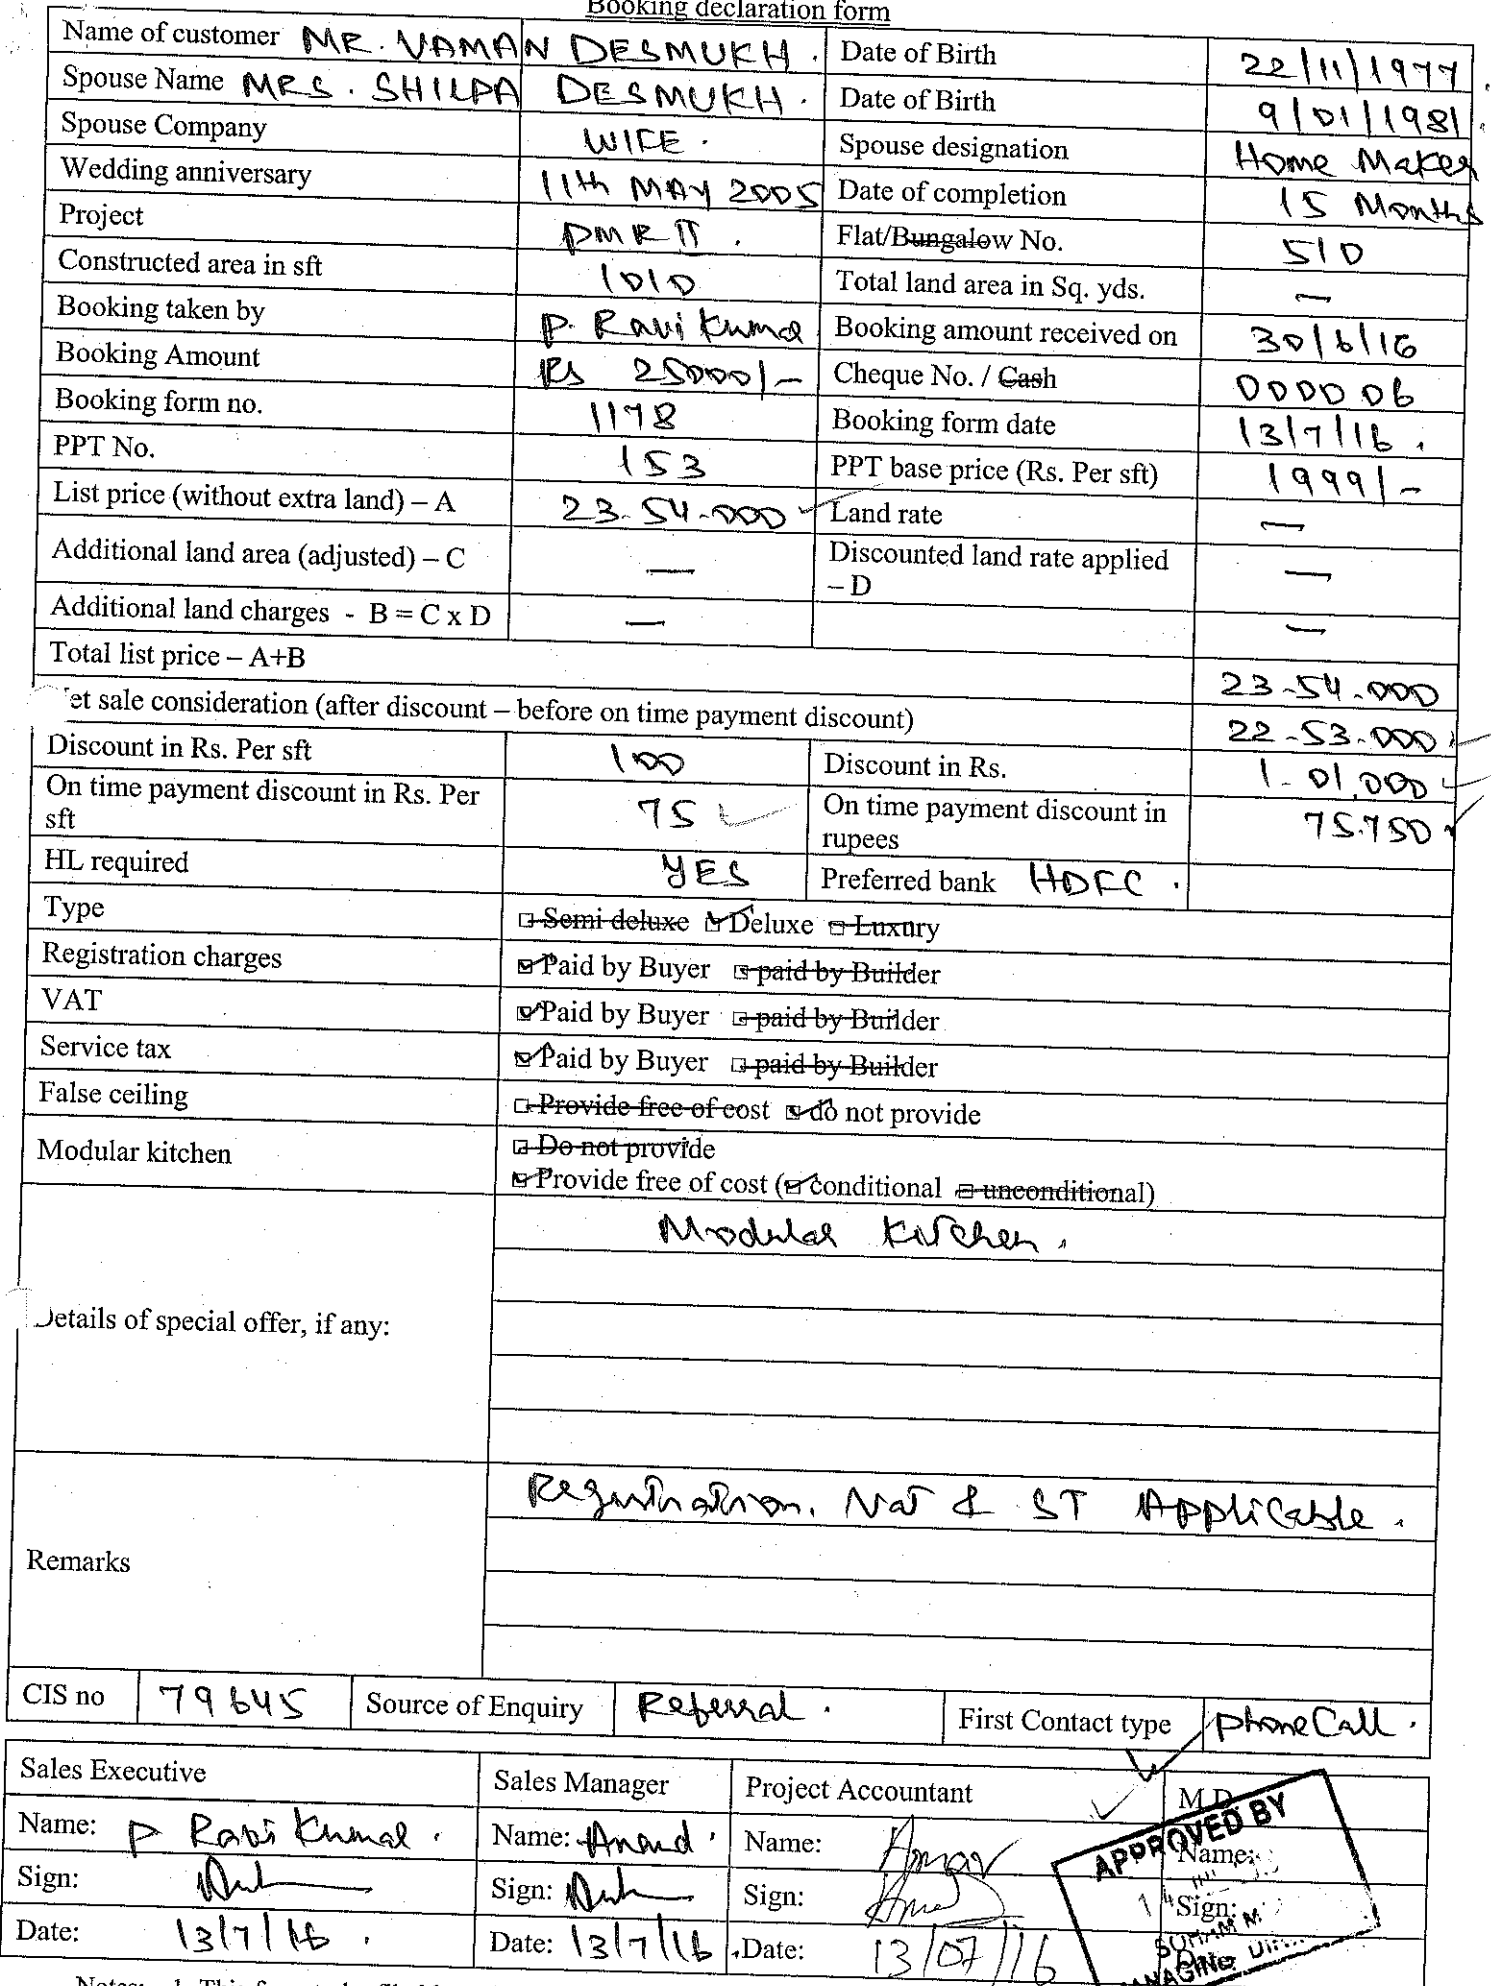 Booking declaration form
Name of customer MR. VAMAN DESMUKH. Date of Birth 22/11/1977
Spouse Name MRS. SHILPA DESMUKH. Date of Birth 9/01/1981
Spouse Company WIFE. Spouse designation Home Maker
Wedding anniversary 11th MAY 2005 Date of completion 15 Months
Project PMR II. Flat/Bungalow No. 510
Constructed area in sft 1010 Total land area in Sq. yds. —
Booking taken by P. Ravi Kumar Booking amount received on 30/6/16
Booking Amount Rs 25000/- Cheque No. / Cash 000006
Booking form no. 1178 Booking form date 13/7/16.
PPT No. 153 PPT base price (Rs. Per sft) 1999/-
List price (without extra land) – A 23-54-000 Land rate —
Additional land area (adjusted) – C — Discounted land rate applied – D —
Additional land charges - B = C x D — —
Total list price – A+B 23-54-000
et sale consideration (after discount – before on time payment discount) 22-53-000
Discount in Rs. Per sft 100 Discount in Rs. 1-01,000
On time payment discount in Rs. Per sft 75 On time payment discount in rupees 75.750
HL required YES Preferred bank HDFC.
Type Semi deluxe Deluxe Luxury
Registration charges Paid by Buyer paid by Builder
VAT Paid by Buyer paid by Builder
Service tax Paid by Buyer paid by Builder
False ceiling Provide free of cost do not provide
Modular kitchen Do not provide
Provide free of cost (conditional unconditional)
Modular Kitchen.
Details of special offer, if any:
Registration. Vat & ST Applicable.
Remarks
CIS no 79645 Source of Enquiry Referral. First Contact type phone Call.
Sales Executive Sales Manager Project Accountant M.D.
APPROVED BY
Name: P Ravi Kumar. Name: Anand Name: Name:
Sign: Sign: Sign: Sign:
Date: 13/7/16. Date: 13/7/16 Date: 13/07/16